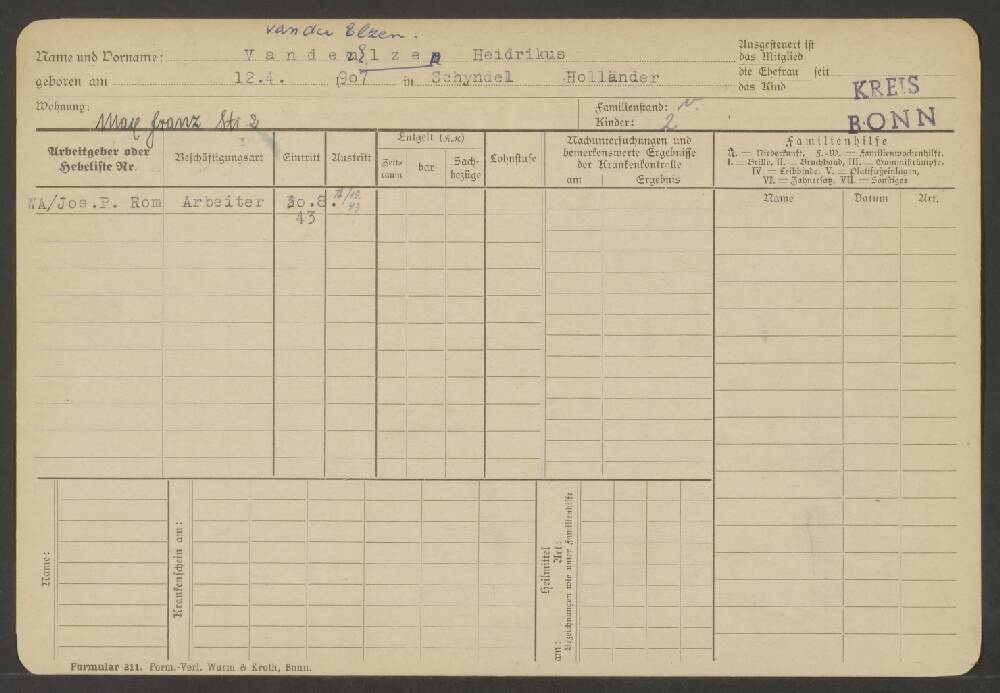 van der Elzen.
Name und Vorname: Vander Elzen Heidrikus
geboren am 12.4. 1907 in Schyndel Holländer
Ausgesteuert ist
das Mitglied
die Ehefrau seit
das Kind
KREIS
BONN
Wohnung: Max Franz Str 2
Familienstand: v.
Kinder: 2
Arbeitgeber oder
Hebeliste Nr.
Beschäftigungsart
Eintritt
Austritt
Entgelt (RM)
Zeit-
raum
bar
Sach-
bezüge
Lohnstufe
Nachuntersuchungen und
bemerkenswerte Ergebnisse
der Krankenkontrolle
am Ergebnis
Familienhilfe
N. = Niederkunft, F.-W. = Familienwochenhilfe,
I. = Brille, II. = Bruchband, III. = Gummistrümpfe,
IV. = Leibbinde, V. = Plattfußeinlagen,
VI. = Zahnersatz, VII. = Sonstiges
Name Datum Art.
WA/Jos.P. Rom Arbeiter 30.8.
43
43
Name:
Krankenschein am:
Heilmittel
Art:
am: Bezeichnungen wie unter Familienhilfe
Formular 211. Form.-Verl. Wurm & Kroth, Bonn.